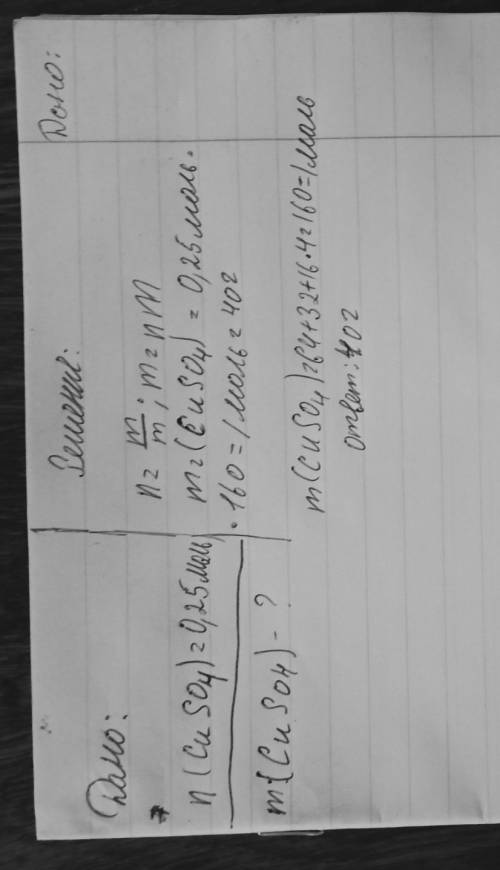 Дано:
n(CuSO4)=0,25моль
m(CuSO4)-?
Решение:
n=m/m; m=nM
m=(CuSO4)=0,25моль·
·160=/моль=40г
m(CuSO4)=64+32+16·4=160=/моль
ответ: 40г
Дано: